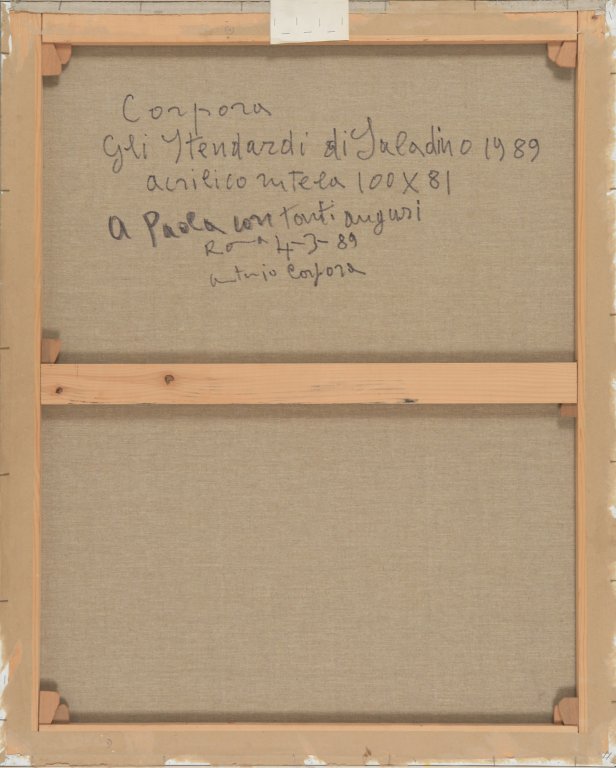 Corpora
Gli Stendardi di Saladino 1989
acrilico su tela 100X81
A Paola con tanti auguri
Roma 4-3-89
Antonio Corpora